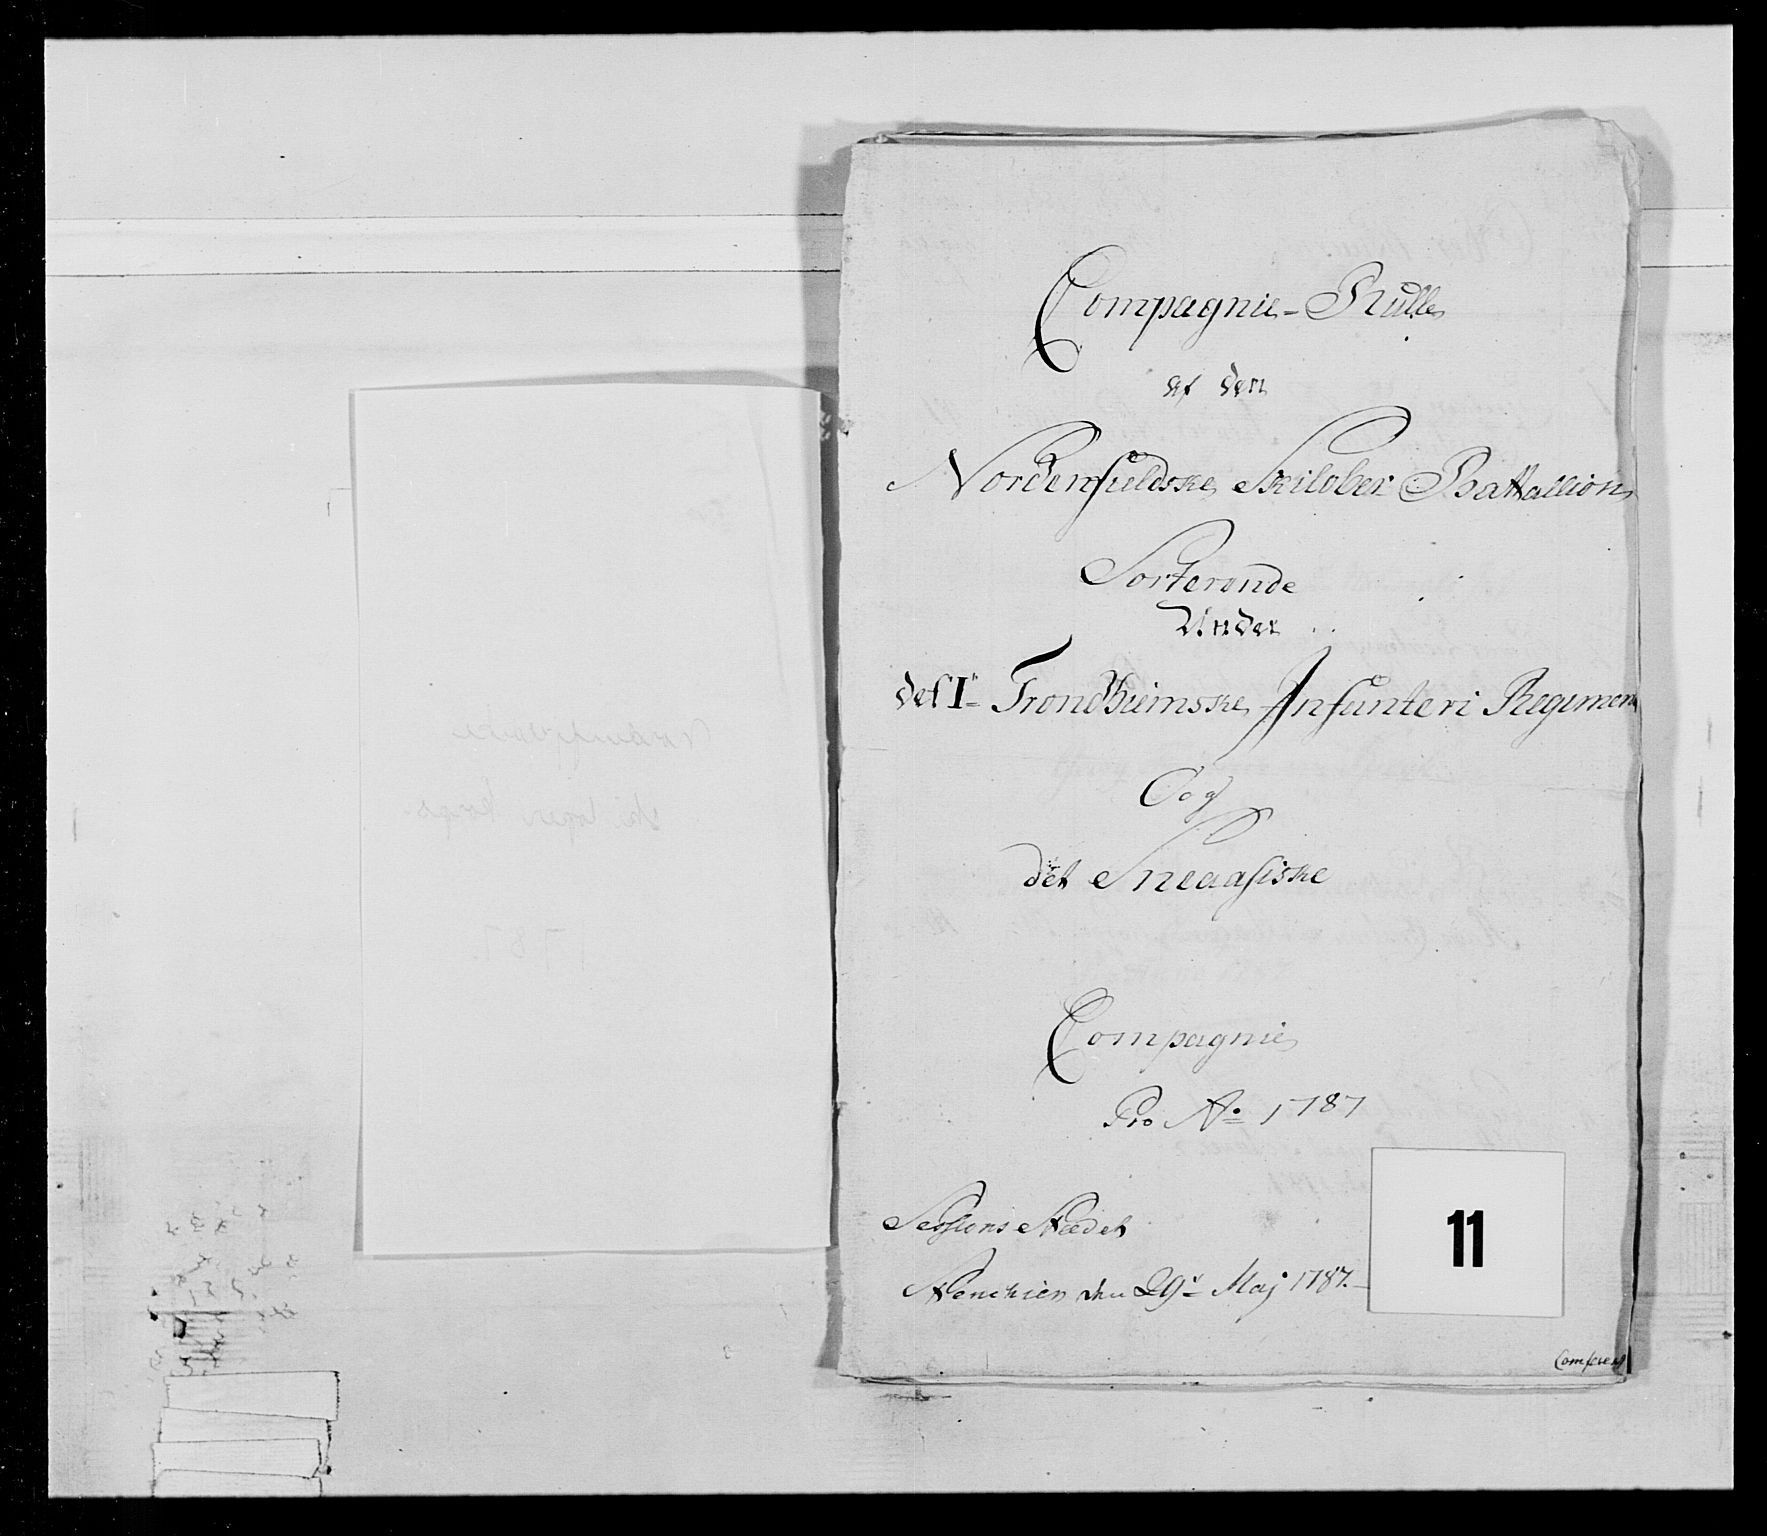 Compagnie-Rulle
af den
Nordenfieldske Skilöber Battallion
Sorterende
Under
det 1te Trondhiemske Infanteri Regiment
Og
det Sneaasiske
Compagnie
Pro Ao 1787
Sessions Stædet
Steenkier den 29de Maj 1787.
11